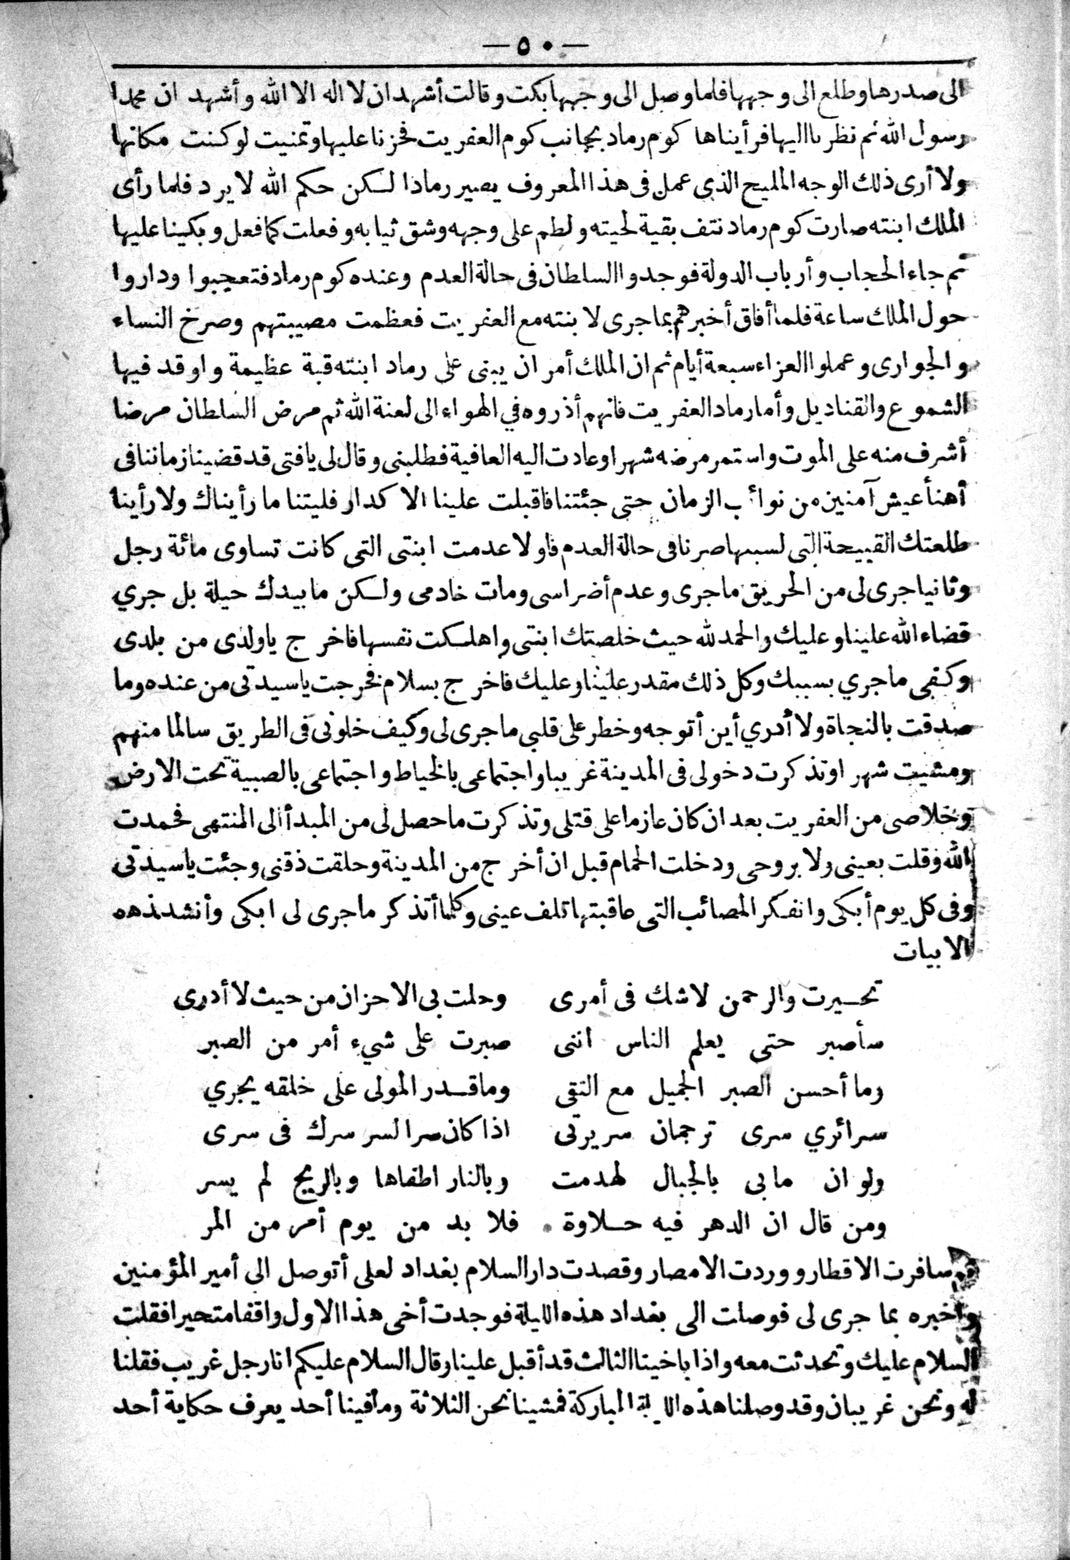 — ٥٠ —
الى صدرها وطلع الى وجهها فلما وصل الى وجهها بكت وقالت أشهد ان لا اله الا الله وأشهد ان محمدا
رسول الله ثم نظرنا اليها فرأيناها كوم رماد بجانب كوم العفريت فحزنا عليها وتمنيت لو كنت مكانها
ولا أرى ذلك الوجه المليح الذي عمل فى هذا المعروف يصير رمادا لكن حكم الله لا يرد فلما رأى
الملك ابنته صارت كوم رماد نتف بقية لحيته ولطم على وجهه وشق ثيابه وفعلت كما فعل وبكينا عليها
ثم جاء الحجاب وأرباب الدولة فوجدوا السلطان فى حالة العدم وعنده كوم رماد فتعجبوا وداروا
حول الملك ساعة فلما أفاق أخبرهم بما جرى لا بنته مع العفريت فعظمت مصيبتهم وصرخ النساء
والجوارى وعملوا العزاء سبعة أيام ثم ان الملك أمر ان يبنى على رماد ابنته قبة عظيمة واوقد فيها
الشموع والقناديل وأما رماد العفريت فانهم أذروه في الهواء الى لعنة الله ثم مرض السلطان مرضا
أشرف منه على الموت واستمر مرضه شهرا وعادت اليه العافية فطلبنى وقال لى يافتى قد قضينا زماننا فى
أهنأ عيش آمنين من نوائب الزمان حتى جئتنا فاقبلت علينا الا كدار فليتنا ما رأيناك ولا رأينا
طلعتك القبيحة التى لسببها صرنا فى حالة العدم فاولا عدمت ابنتى التى كانت تساوى مائة رجل
وثانيا جرى لى من الحريق ما جرى وعدم أضراسى ومات خادمى ولكن ما بيدك حيلة بل جري
قضاء الله علينا وعليك والحمد لله حيث خلصتك ابنتى واهلكت نفسها فاخرج ياولدى من بلدى
وكفى ما جري بسببك وكل ذلك مقدر علينا وعليك فاخرج بسلام فخرجت ياسيدتى من عنده وما
صدقت بالنجاة ولا أدري أين أتوجه وخطر على قلبي ما جرى لى وكيف خلونى فى الطريق سالما منهم
ومشيت شهرا وتذكرت دخولى فى المدينة غريبا واجتماعى بالخياط واجتماعى بالصبية تحت الارض
وخلاصى من العفريت بعد ان كان عازما على قتلى وتذكرت ما حصل لى من المبدأ الى المنتهى فحمدت
الله وقلت بعينى ولا بروحى ودخلت الحمام قبل ان أخرج من المدينة وحلقت ذقنى وجئت ياسيدتى
وفى كل يوم أبكى واتفكر المصائب التى عاقبتها تلف عينى وكلما أتذكر ما جرى لى ابكى وأنشد هذه
الابيات
تحيرت والرحمن لاشك فى أمرى وحلت بى الاحزان من حيث لا أدرى
سأصبر حتى يعلم الناس اننى صبرت على شيء أمر من الصبر
وما أحسن الصبر الجميل مع التقى وما قدر المولى على خلقه يجري
سرائري سرى ترجمان سريرتى اذا كان سر السر سرك فى سرى
ولو ان مابى بالجبال لهدمت وبالنار اطفاها وبالريح لم يسر
ومن قال ان الدهر فيه حلاوة فلا بد من يوم أمر من المر
ثم سافرت الاقطار ووردت الامصار وقصدت دار السلام بغداد لعلى أتوصل الى أمير المؤمنين
وأخبره بما جرى لى فوصلت الى بغداد هذه الليلة فوجدت أخى هذا الاول واقفا متحيرا فقلت
السلام عليك وتحدثت معه واذا باخينا الثالث قد أقبل علينا وقال السلام عليكم انا رجل غريب فقلنا
له ونحن غريبان وقد وصلنا هذه الليلة المباركة فمشينا نحن الثلاثة وما فينا أحد يعرف حكاية أحد